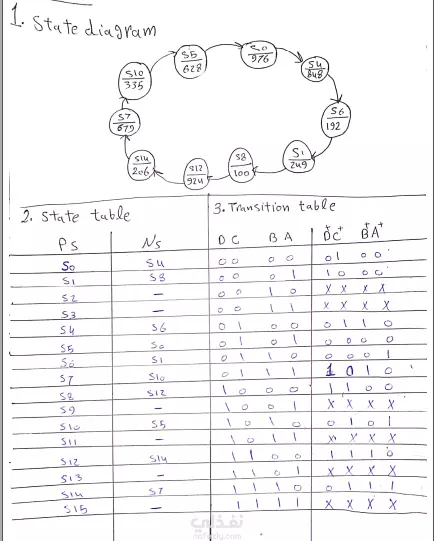 1. State diagram
S0
976
S5
628
S4
848
S10
335
S6
192
S7
679
S1
249
S14
206
S12
924
S8
100
2. State table
3. Transition table
PS NS D C B A D+ C+ B+ A+
S0 S4 0 0 0 0 0 1 0 0
S1 S8 0 0 0 1 1 0 0 0
S2 – 0 0 1 0 X X X X
S3 – 0 0 1 1 X X X X
S4 S6 0 1 0 0 0 1 1 0
S5 S0 0 1 0 1 0 0 0 0
S6 S1 0 1 1 0 0 0 0 1
S7 S10 0 1 1 1 1 0 1 0
S8 S12 1 0 0 0 1 1 0 0
S9 – 1 0 0 1 X X X X
S10 S5 1 0 1 0 0 1 0 1
S11 – 1 0 1 1 X X X X
S12 S14 1 1 0 0 1 1 1 0
S13 – 1 1 0 1 X X X X
S14 S7 1 1 1 0 0 1 1 1
S15 – 1 1 1 1 X X X X
نفذلي